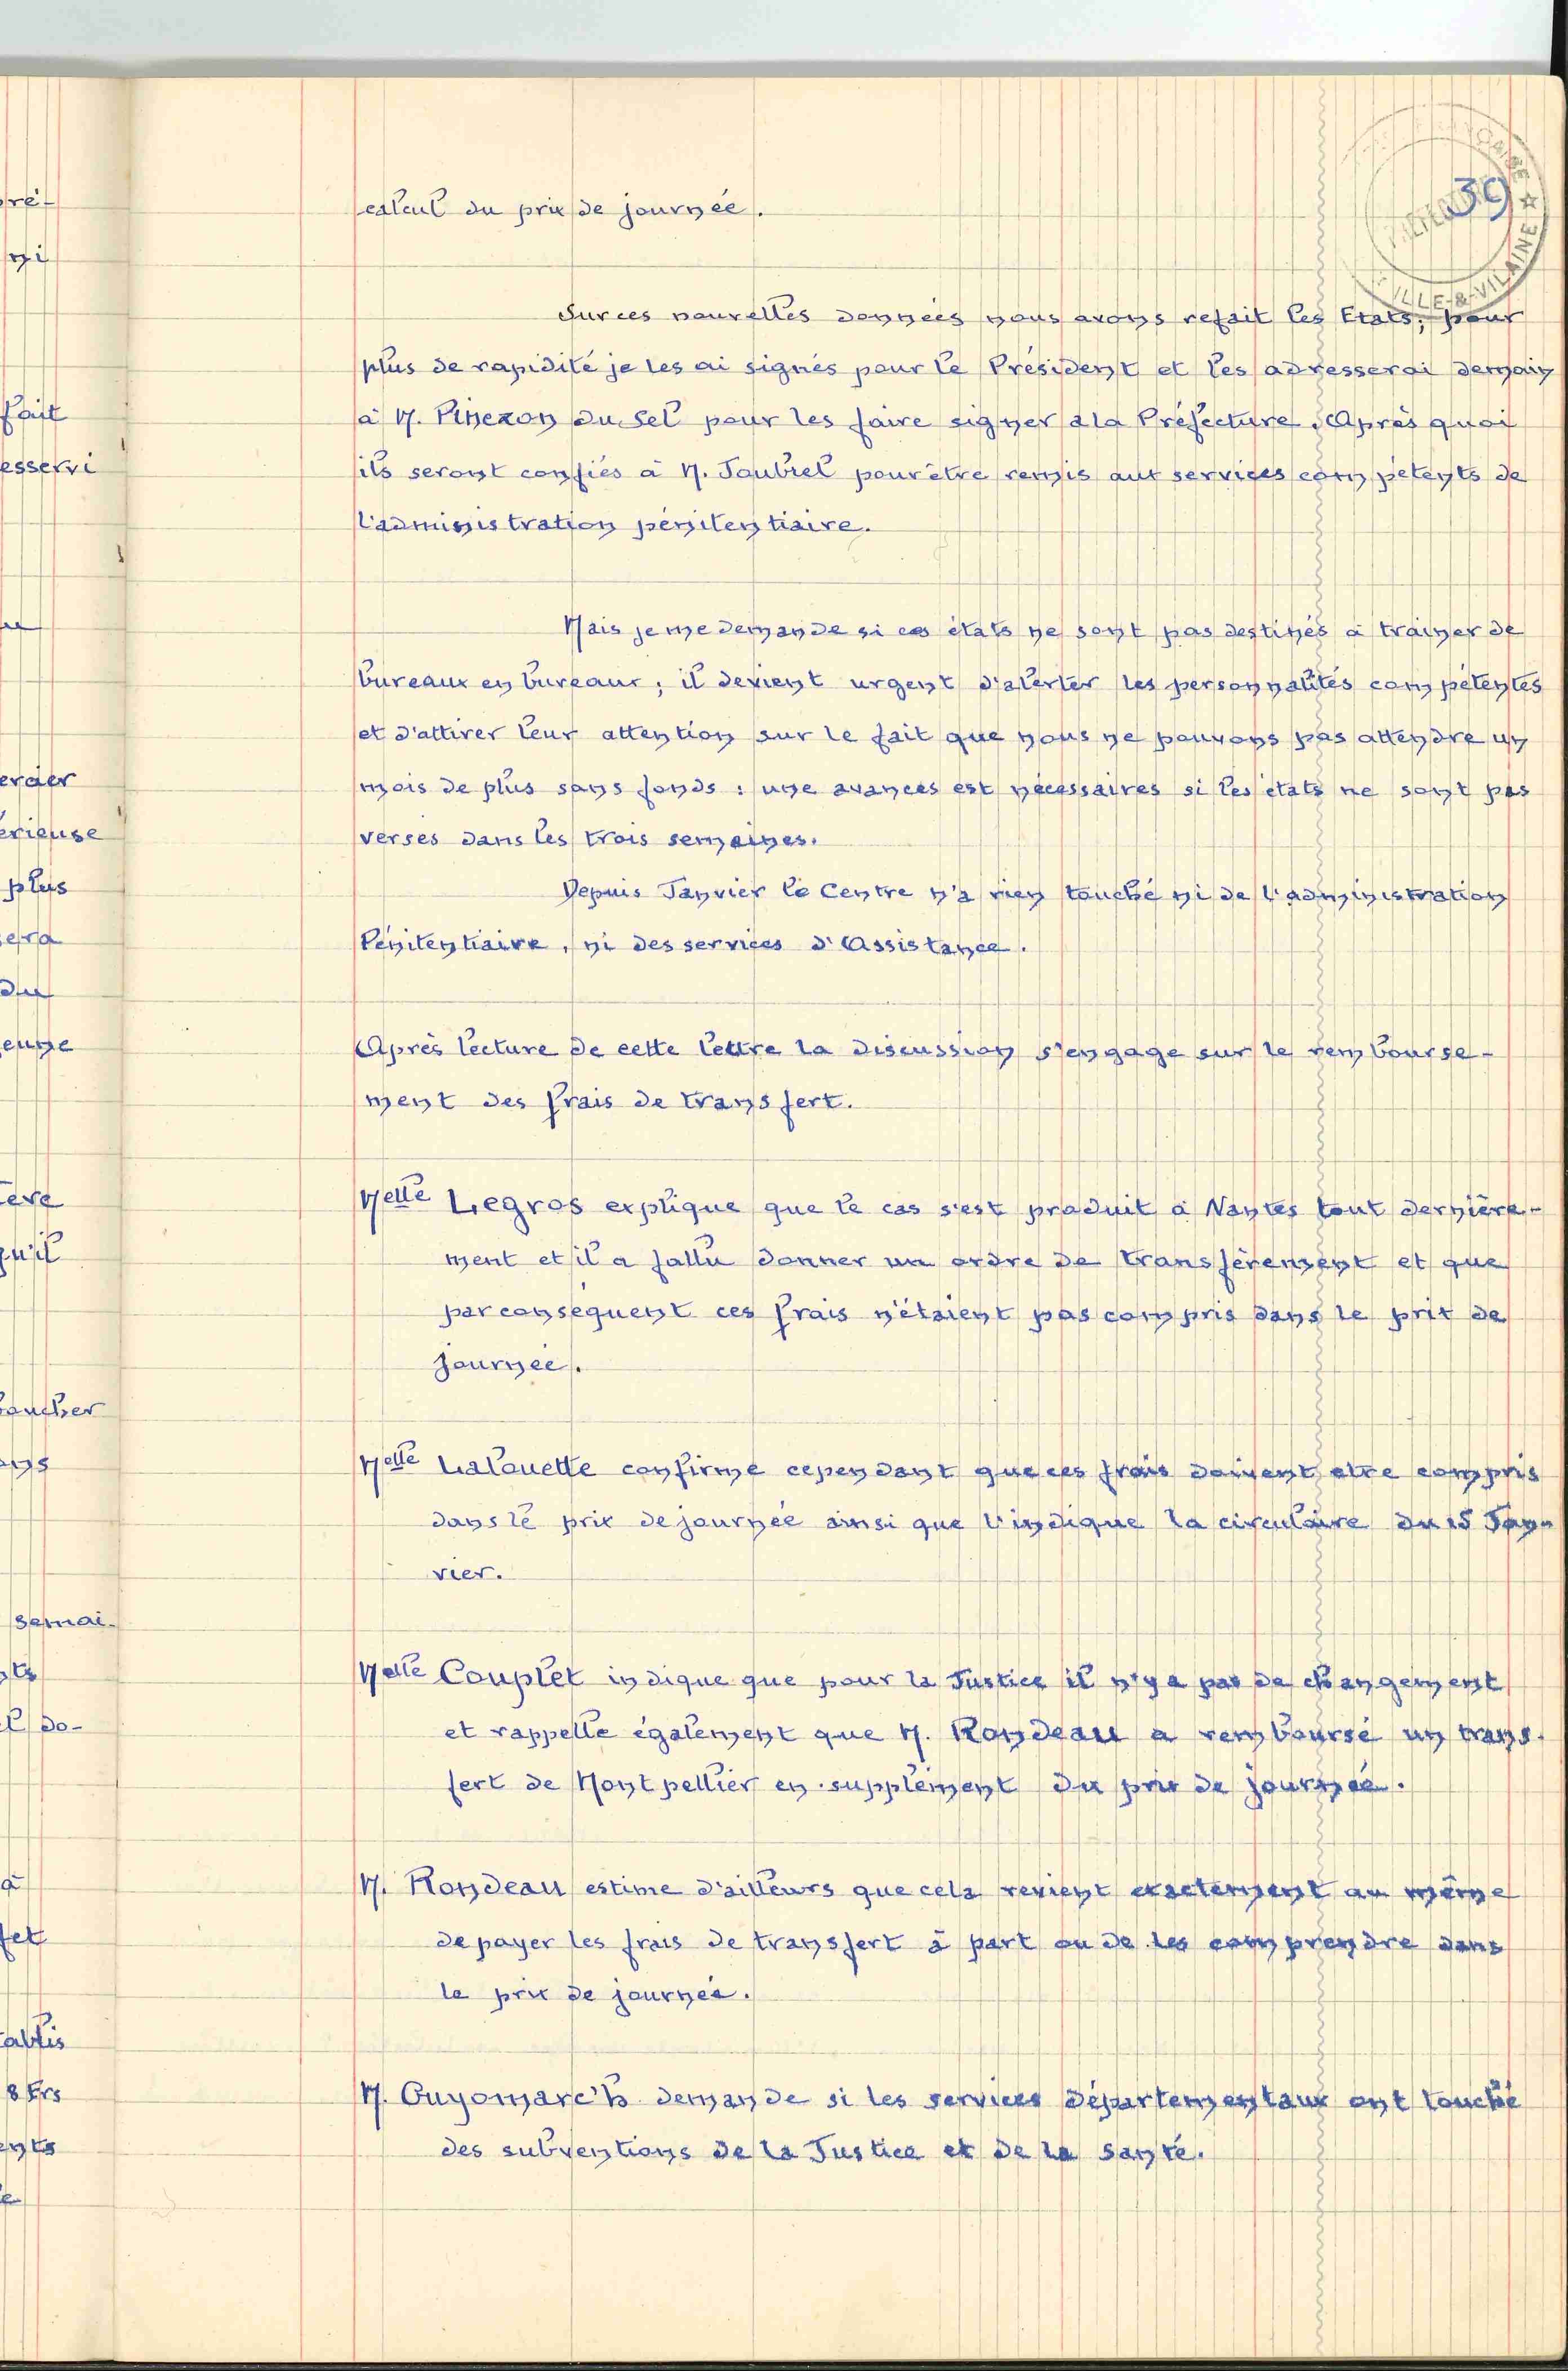 39
calcul du prix de journée.
Sur ces nouvelles données nous avons refait les Etats; pour
plus de rapidité je les ai signés pour le Président et les adresserai demain
à M. Pinezon du Sel pour les faire signer a la Préfecture. Après quoi
ils seront confiés à M. Joubrel pour être remis aux services compétents de
l'administration pénitentiaire.
Mais je me demande si ces états ne sont pas destinés à trainer de
bureaux en bureaux; il devient urgent d'alerter les personnalités compétentes
et d'attirer leur attention sur le fait que nous ne pouvons pas attendre un
mois de plus sans fonds : une avances est nécessaires si les états ne sont pas
versés dans les trois semaines.
Depuis Janvier le Centre n'a rien touché ni de l'administration
Pénitentiaire, ni des services d'Assistance.
Après lecture de cette lettre la discussion s'engage sur le rembourse-
ment des frais de transfert.
Melle Legros explique que le cas s'est produit à Nantes tout dernière-
ment et il a fallu donner un ordre de transfèrement et que
par conséquent ces frais n'étaient pas compris dans le prix de
journée.
Melle Lalouette confirme cependant que ces frais doivent etre compris
dans le prix de journée ainsi que l'indique la circulaire du 15 Jan-
vier.
Melle Couplet indique que pour la Justice il n'y a pas de changement
et rappelle également que M. Rondeau a remboursé un trans-
fert de Montpellier en supplément du prix de journée.
M. Rondeau estime d'ailleurs que cela revient exactement au même
de payer les frais de transfert à part ou de les comprendre dans
le prix de journée.
M. Guyomarc'h demande si les services départementaux ont touché
des subventions de la Justice et de la Santé.
ILLE-&-VILAINE